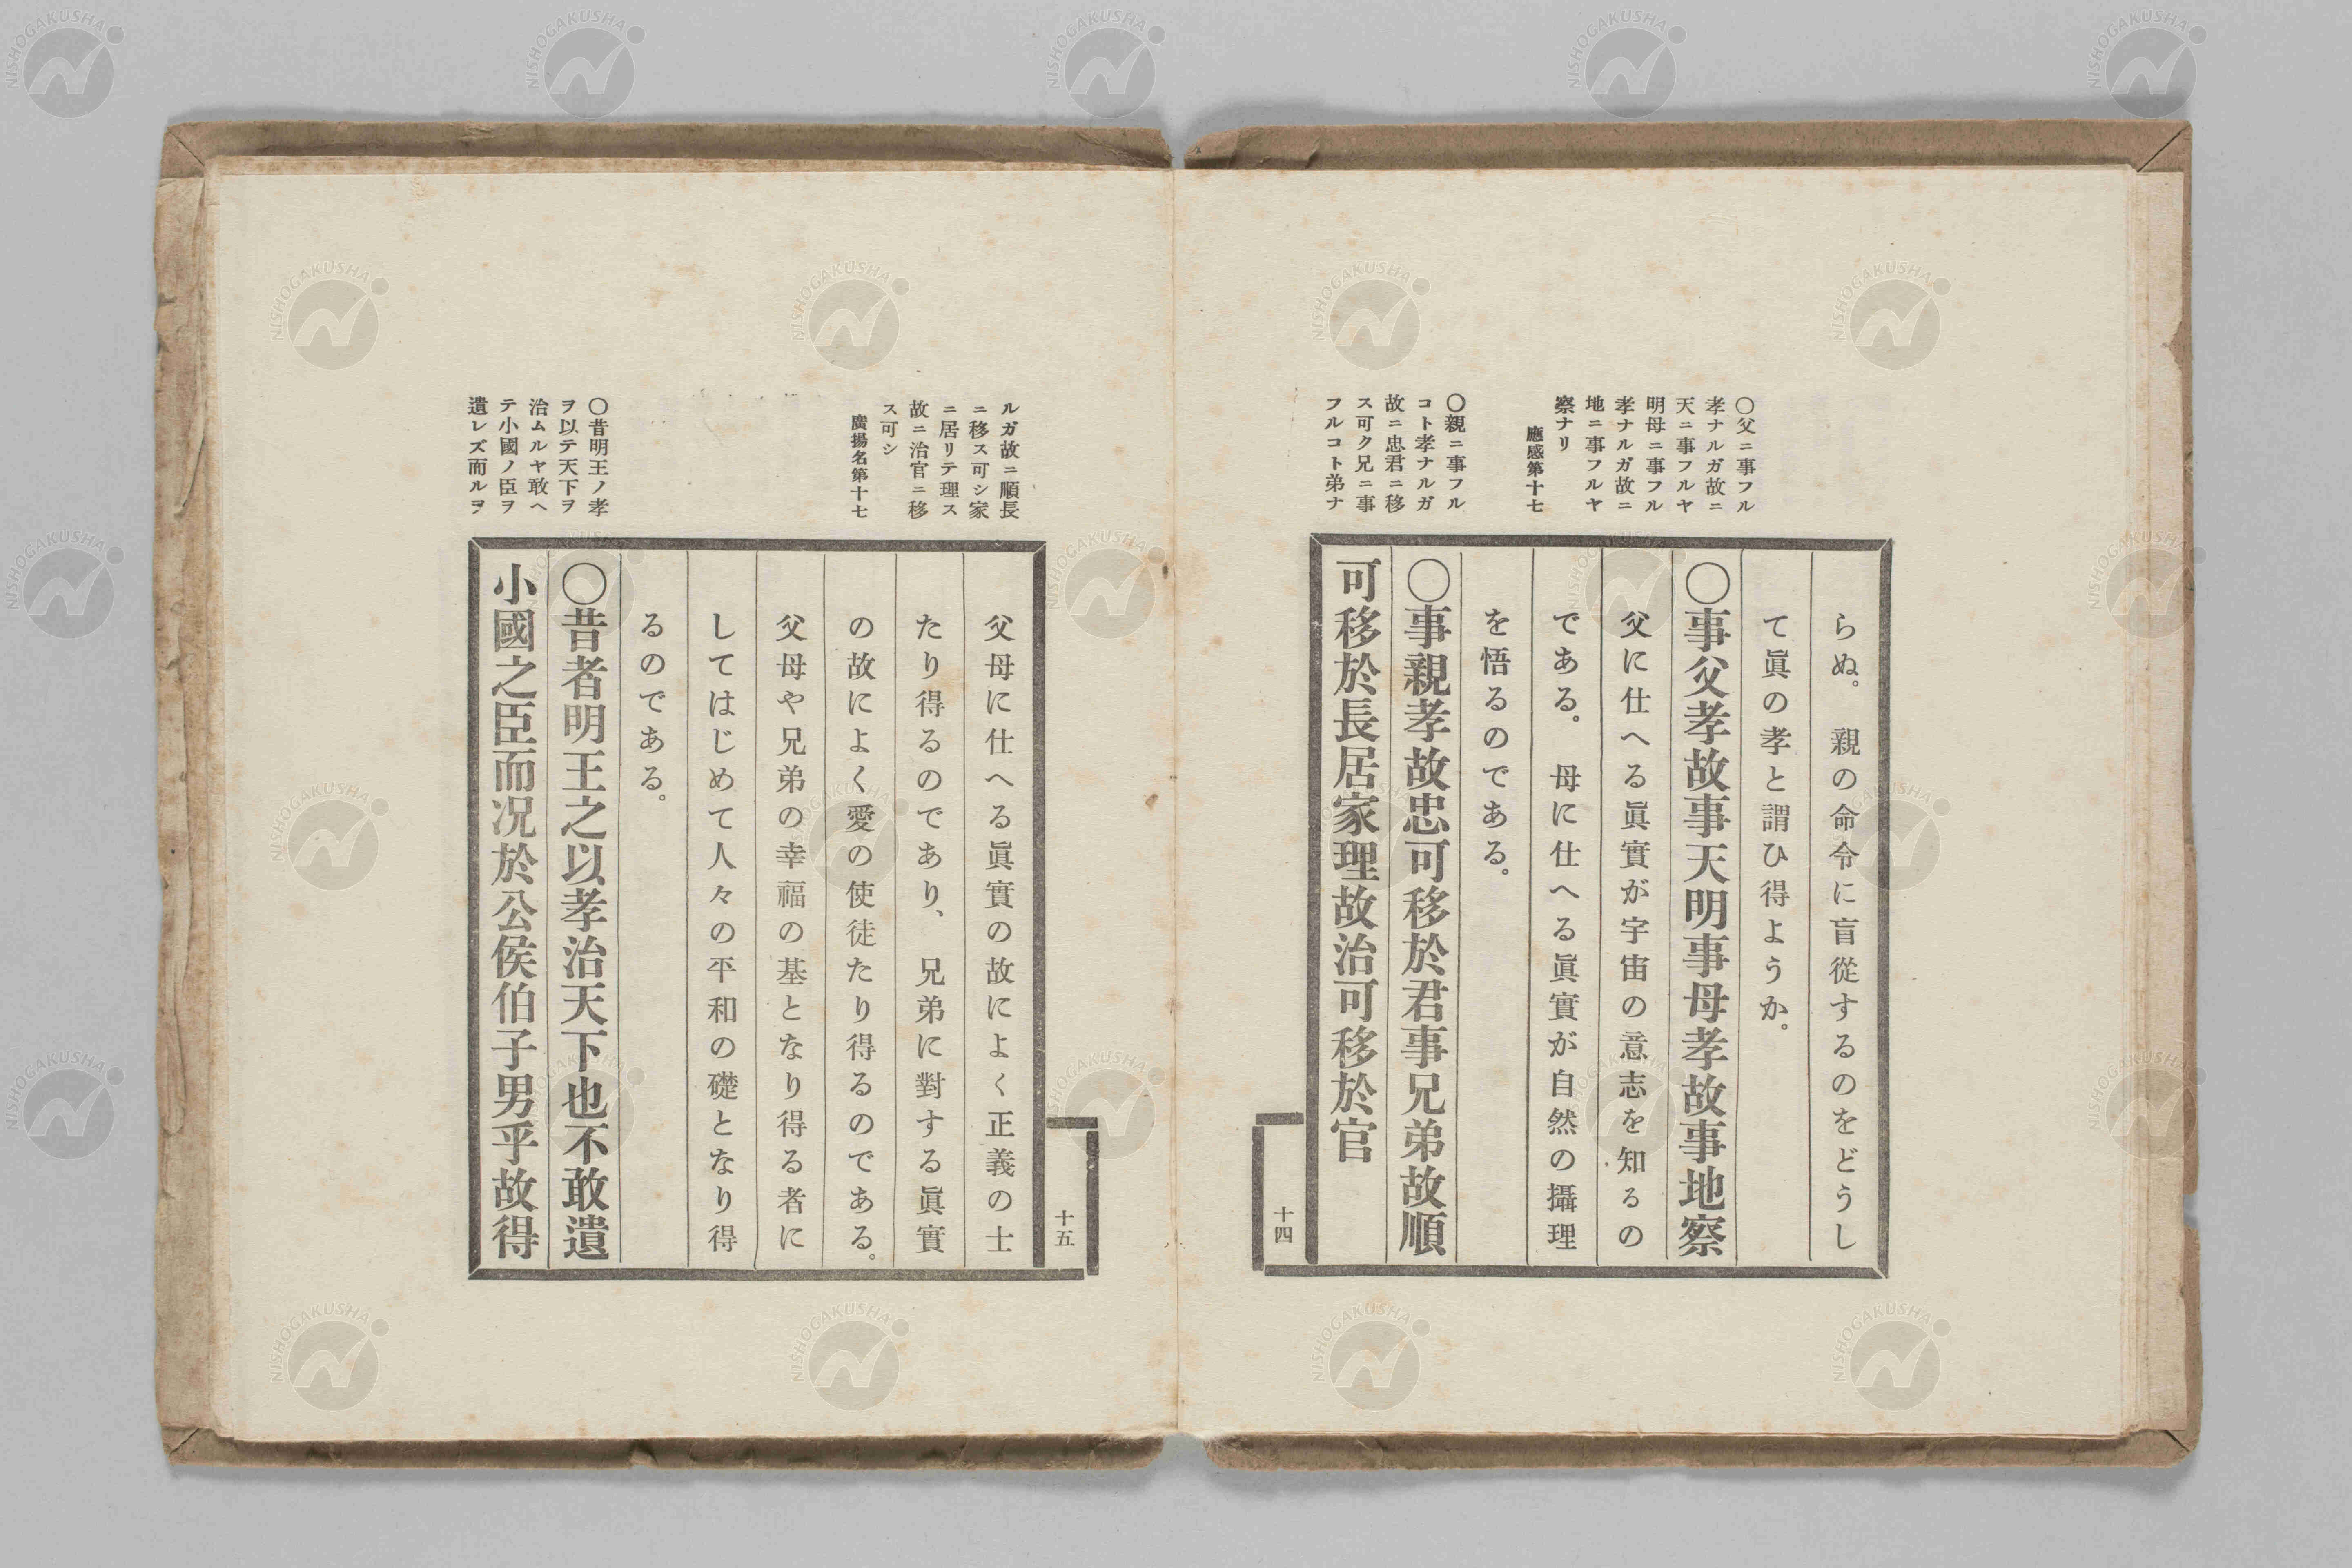 〇父ニ事フル
孝ナルガ故ニ
天ニ事フルヤ
明母ニ事フル
孝ナルガ故ニ
地ニ事フルヤ
察ナリ
應感第十七
〇親ニ事フル
コト孝ナルガ
故ニ忠君ニ移
ス可ク兄ニ事
フルコト弟ナ
らぬ。親の命令に盲從するのをどうし
て眞の孝と謂ひ得ようか。
〇事父孝故事天明事母孝故事地察
父に仕へる眞實が宇宙の意志を知るの
である。母に仕へる眞實が自然の攝理
を悟るのである。
〇事親孝故忠可移於君事兄弟故順
可移於長居家理故治可移於官
十四
ルガ故ニ順長
ニ移ス可シ家
ニ居リテ理ス
故ニ治官ニ移
ス可シ
廣揚名第十七
〇昔明王ノ孝
ヲ以テ天下ヲ
治ムルヤ敢ヘ
テ小國ノ臣ヲ
遺レズ而ルヲ
十五
父母に仕へる眞實の故によく正義の士
たり得るのであり、兄弟に對する眞實
の故によく愛の使徒たり得るのである。
父母や兄弟の幸福の基となり得る者に
してはじめて人々の平和の礎となり得
るのである。
〇昔者明王之以孝治天下也不敢遺
小國之臣而况於公侯伯子男乎故得
NISHOGAKUSHA